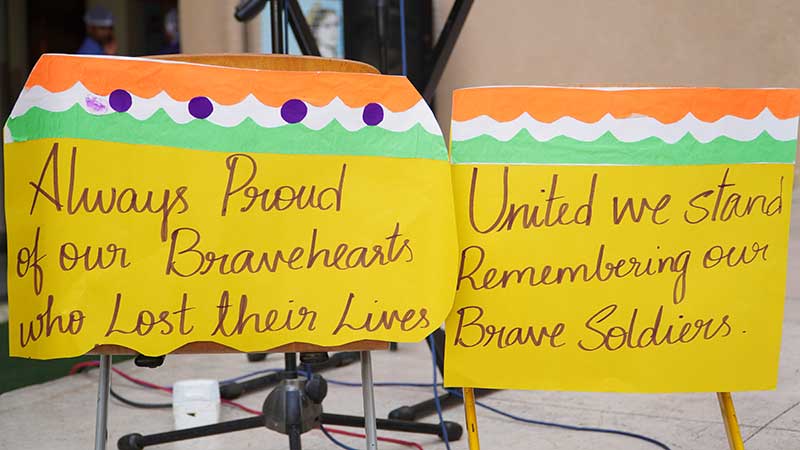 Always Proud
of our Bravehearts
who Lost their Lives
United we stand
Remembering our
Brave Soldiers.